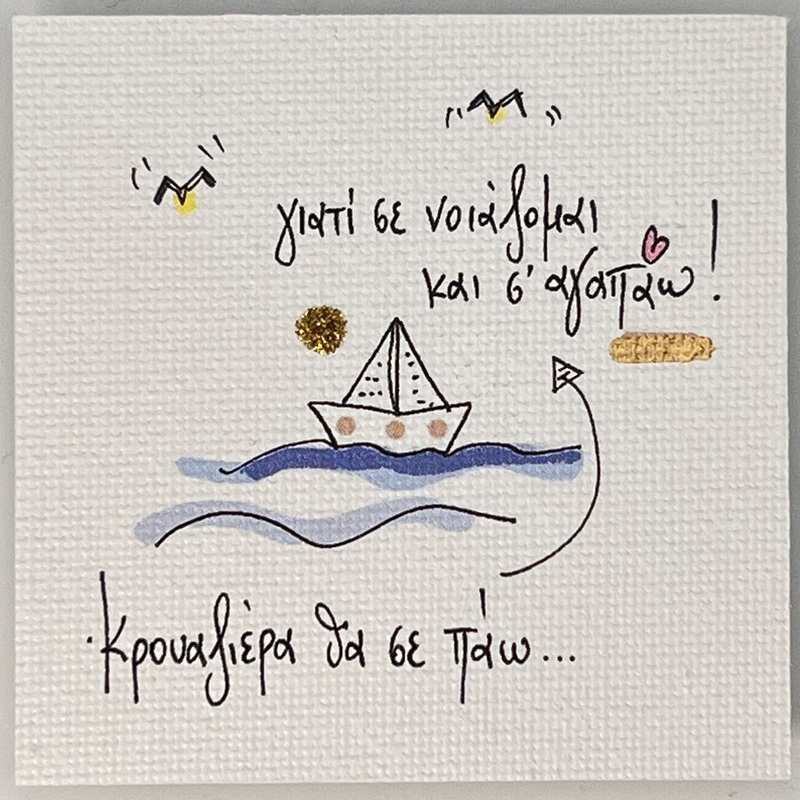 γιατί σε νοιάζομαι
και σ' αγαπάω!
Κρουαζιέρα θα σε πάω...